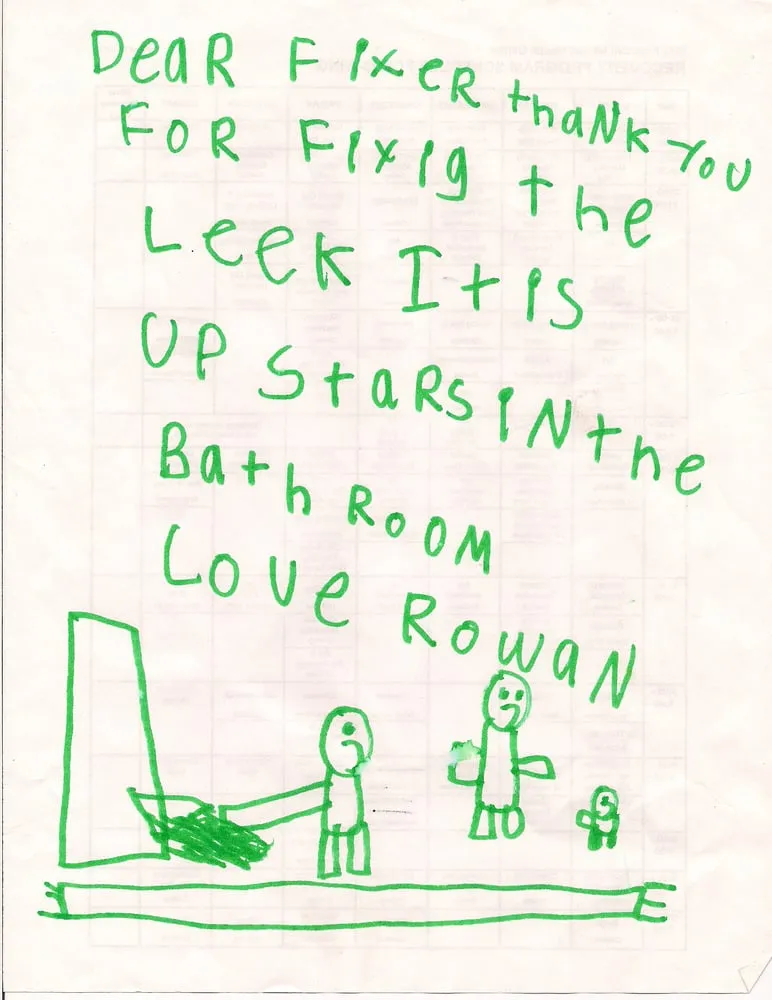 DeaR FIxeR thaNK YOU
FOR FIxig the
Leek It is
UP StaRS iN the
Bath ROOM
Love ROWaN